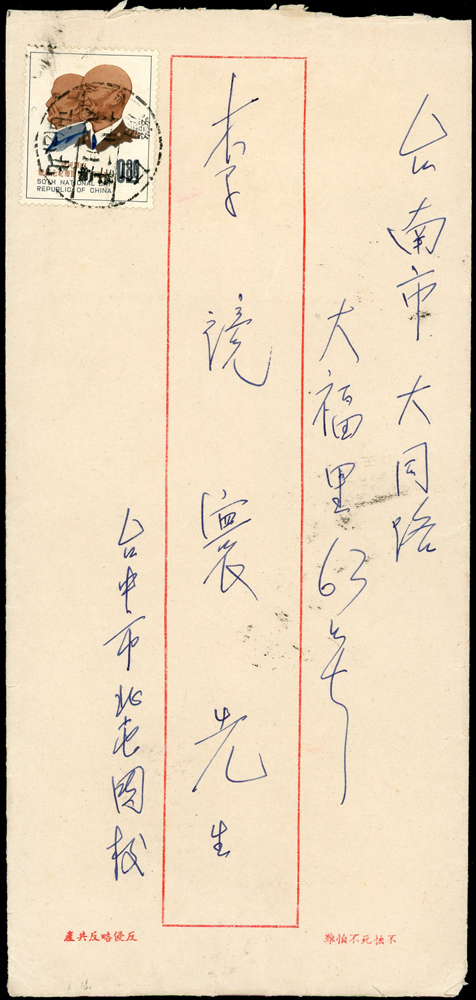 台南市大同路
大福里63号
李鏡寰先生
台中市北屯国校
0.80
50TH NATIONAL DAY
REPUBLIC OF CHINA
不怕死不怕難
反侵略反共產